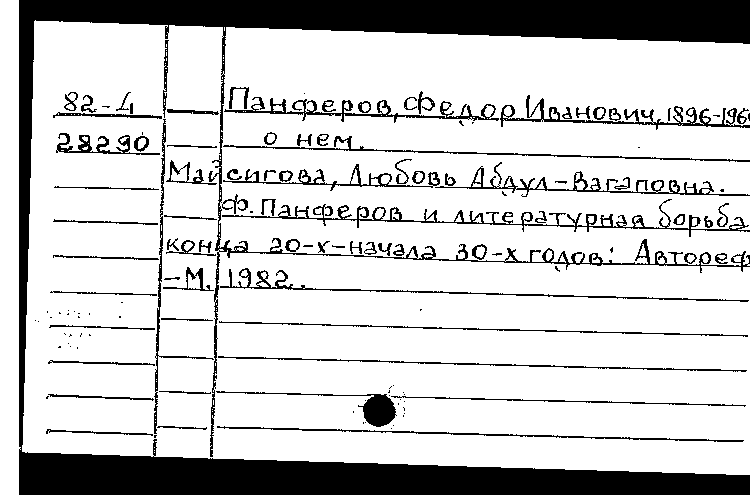 82-4 Панферов, Федор Иванович, 1896-196
28290 о нем.
Майсигова, Любовь Абдул-Вагаповна.
Ф. Панферов и литературная борьба
конца 20-х-начала 30-х годов: Автореф
-М. 1982.